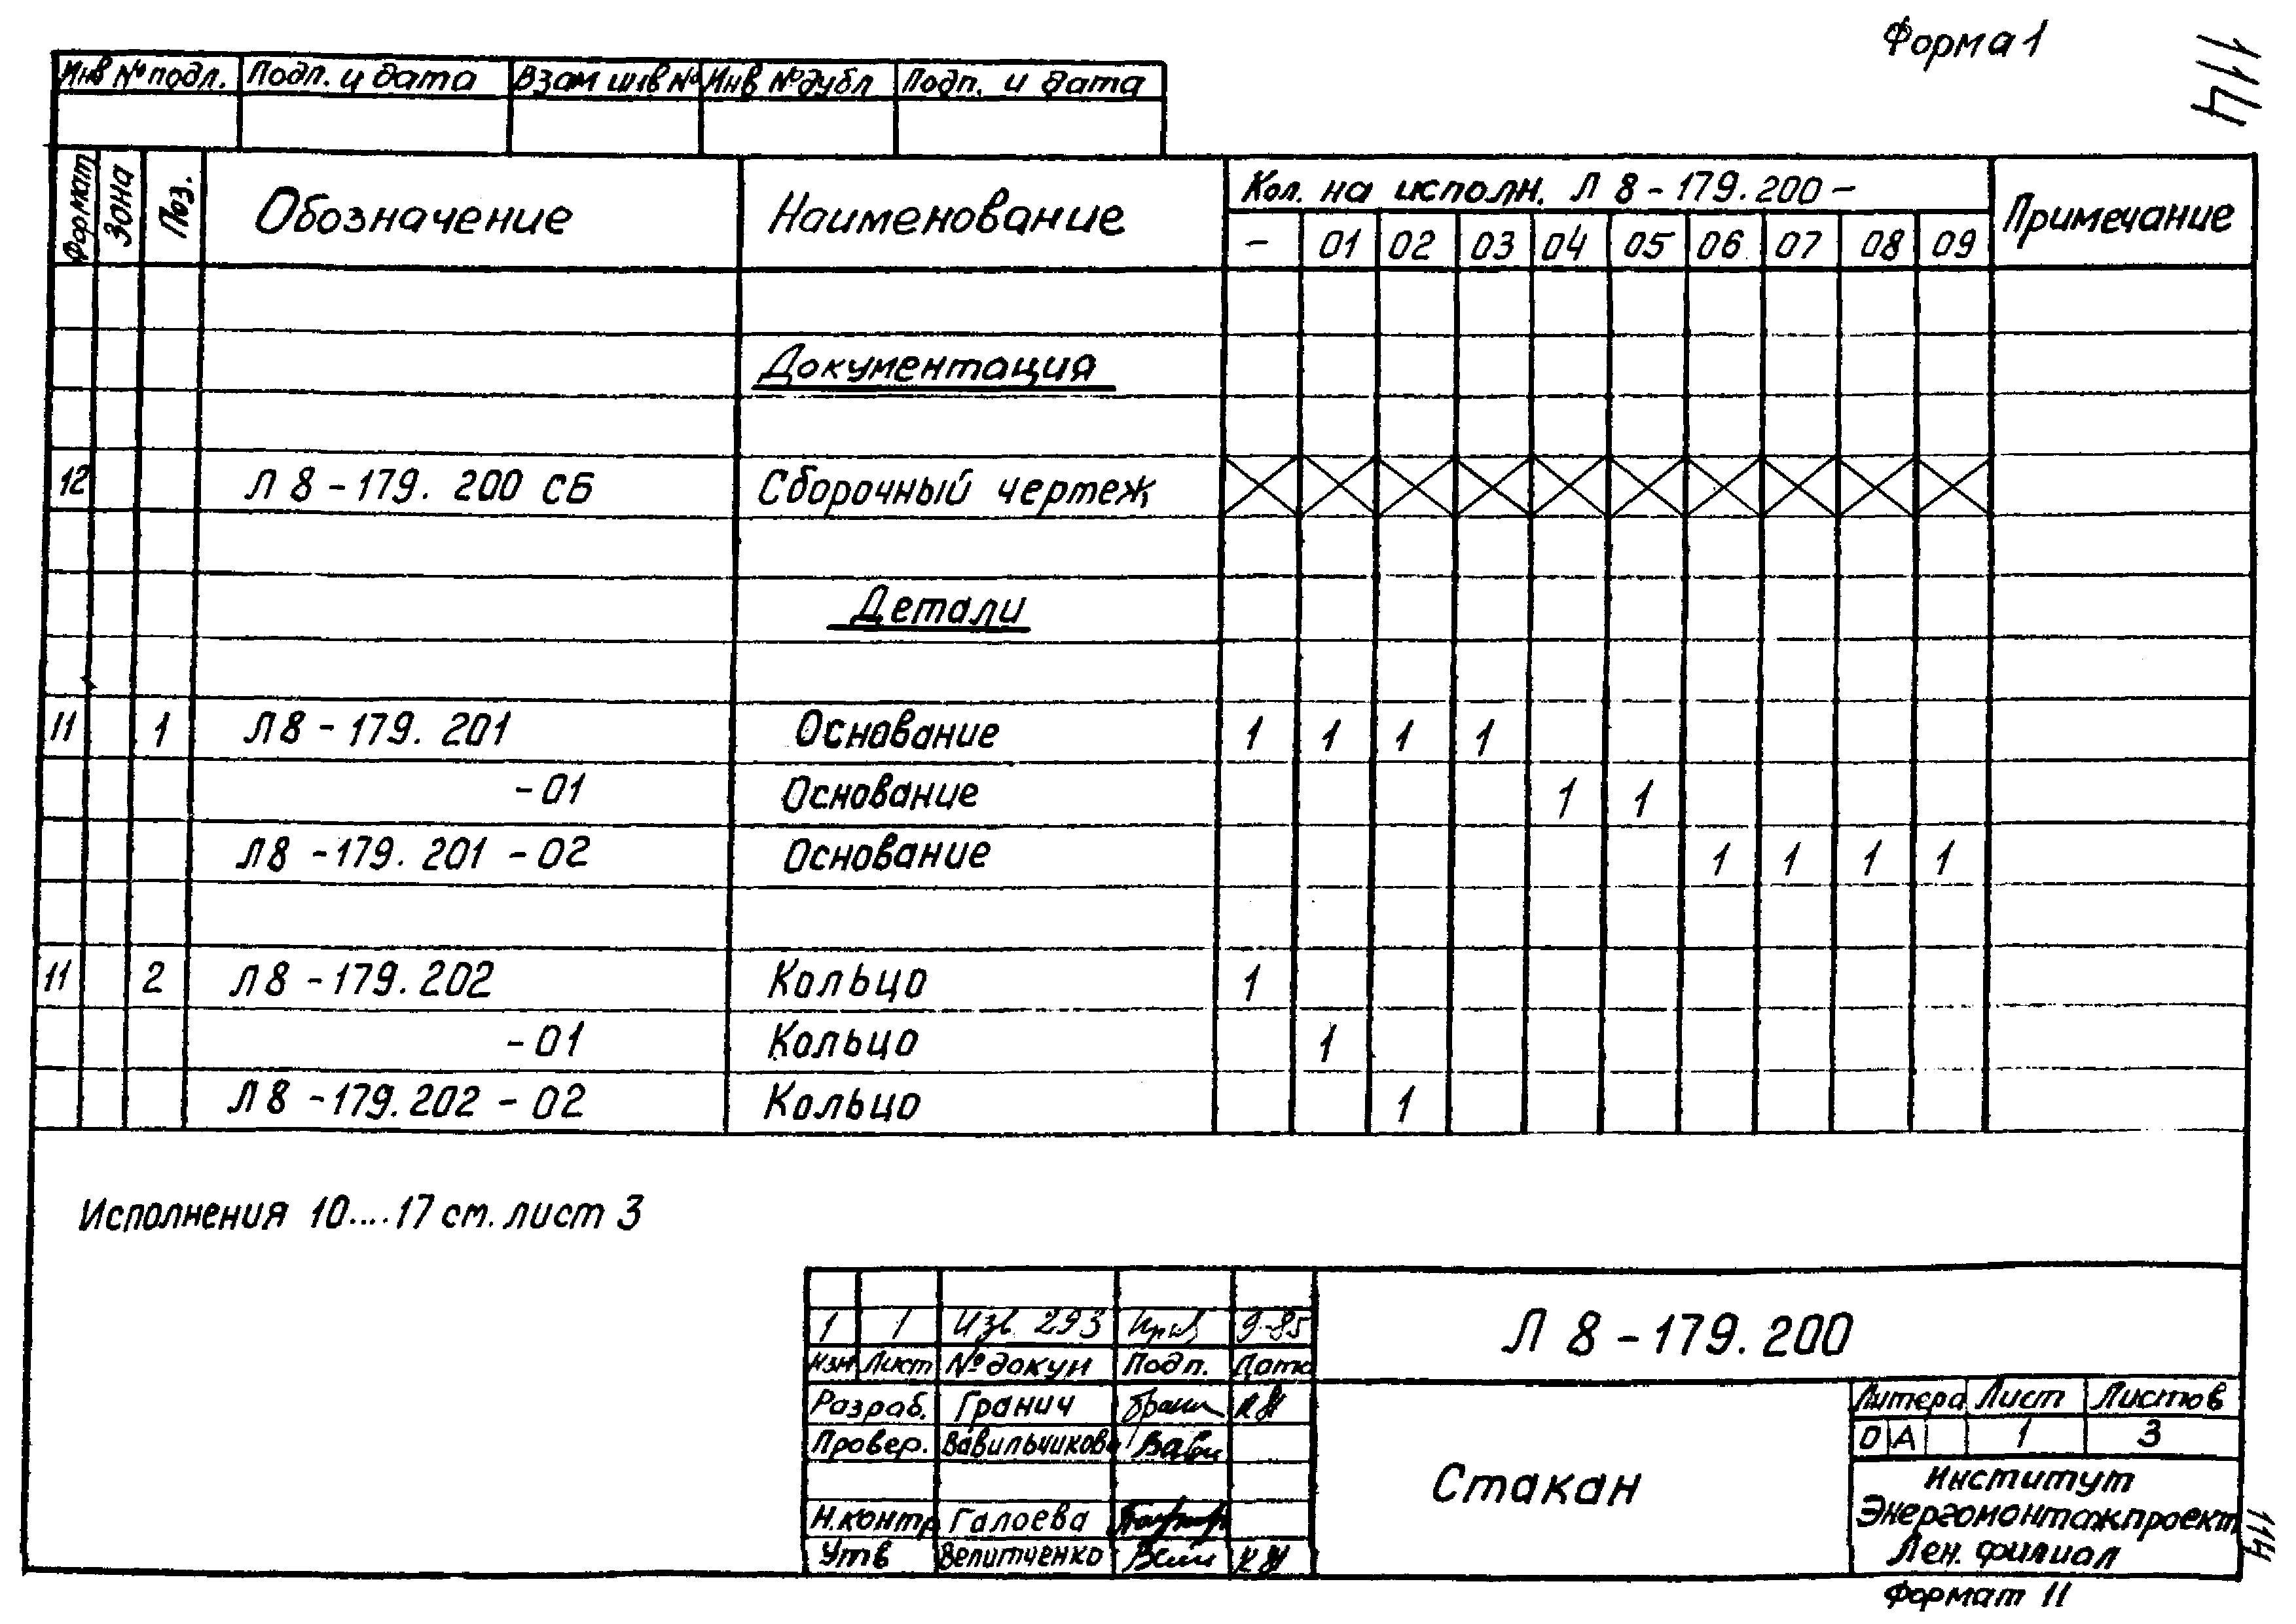 Форма 1
114
Инв № подл. Подп. и дата Взам инв № Инв № дубл Подп. и дата
Формат Зона Поз. Обозначение Наименование Кол. на исполн. Л 8-179.200- Примечание
- 01 02 03 04 05 06 07 08 09
Документация
12 Л 8-179. 200 СБ Сборочный чертеж
Детали
11 1 Л8-179. 201 Основание 1 1 1 1
-01 Основание 1 1
Л8-179. 201-02 Основание 1 1 1 1
11 2 Л8-179.202 Кольцо 1
-01 Кольцо 1
Л8-179.202-02 Кольцо 1
Исполнения 10....17 см. лист 3
1 1 Изв. 293 9-85
Изм Лист № докум Подп. Дата
Л 8-179.200
Разраб. Гранич
Провер. Вавильчикова
Н.контр Галоева
Утв Велитченко
Стакан
Литера Лист Листов
О А 1 3
Институт
Энергомонтажпроект
Лен. филиал
114
Формат 11